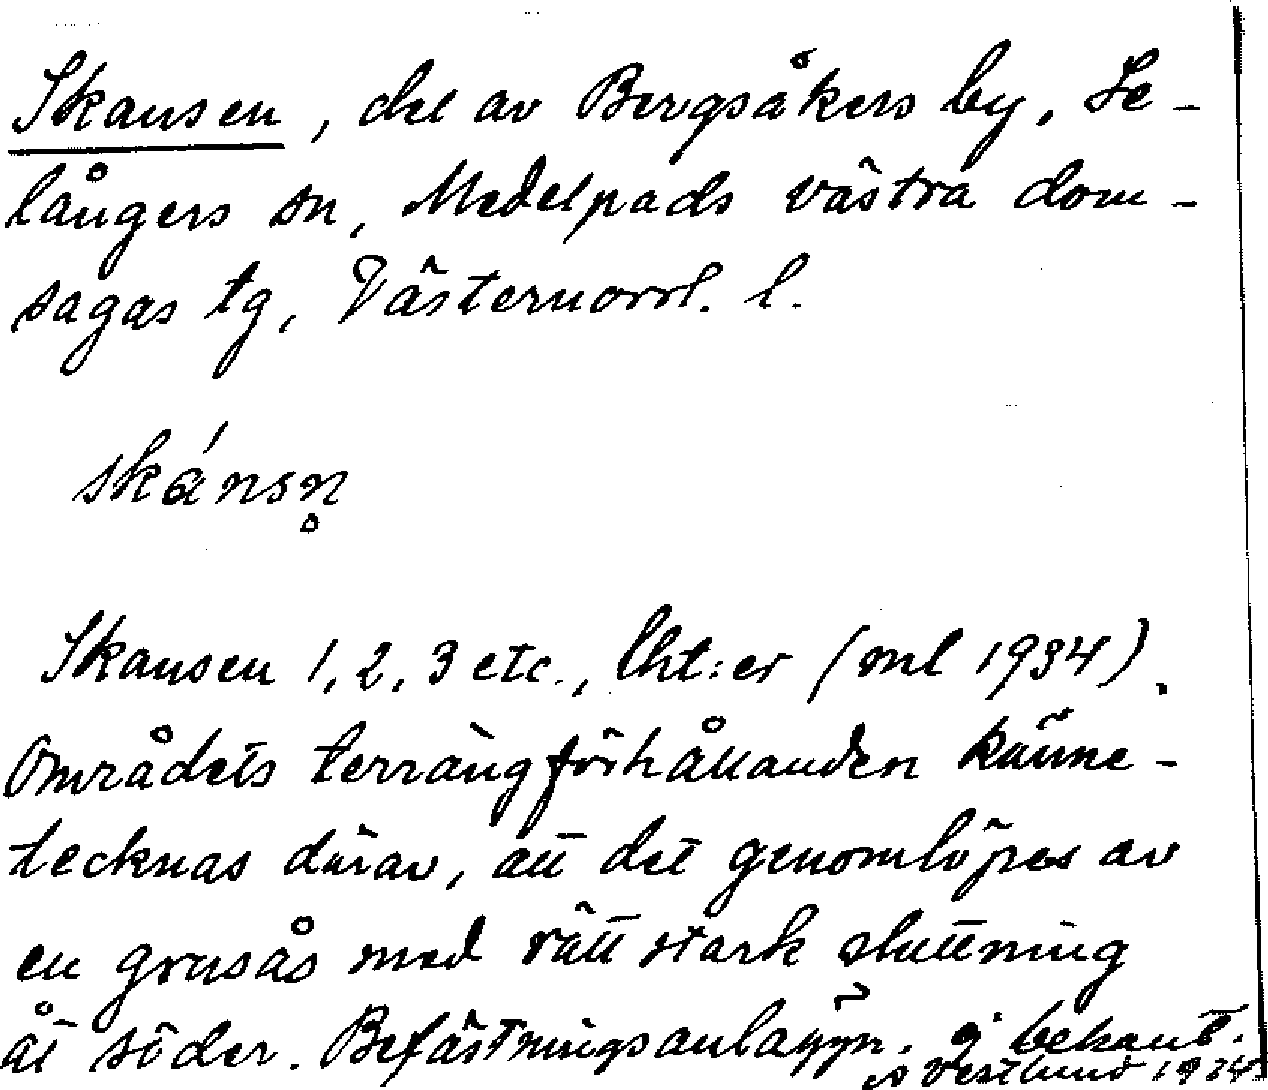 Skansen, del av Bergsåkers by, Se-
långers sn, Medelpads västra dom-
sagas tg, Västernorrl. l.
skánsn̥
Skansen 1, 2, 3 etc., lht:er (ml 1934).
Områdets terrängförhållanden känne-
tecknas därav, att det genomlöpes av
en grusås med rätt stark sluttning
åt söder. Befästningsanläggn. ej bekant.
Vestlund 1934